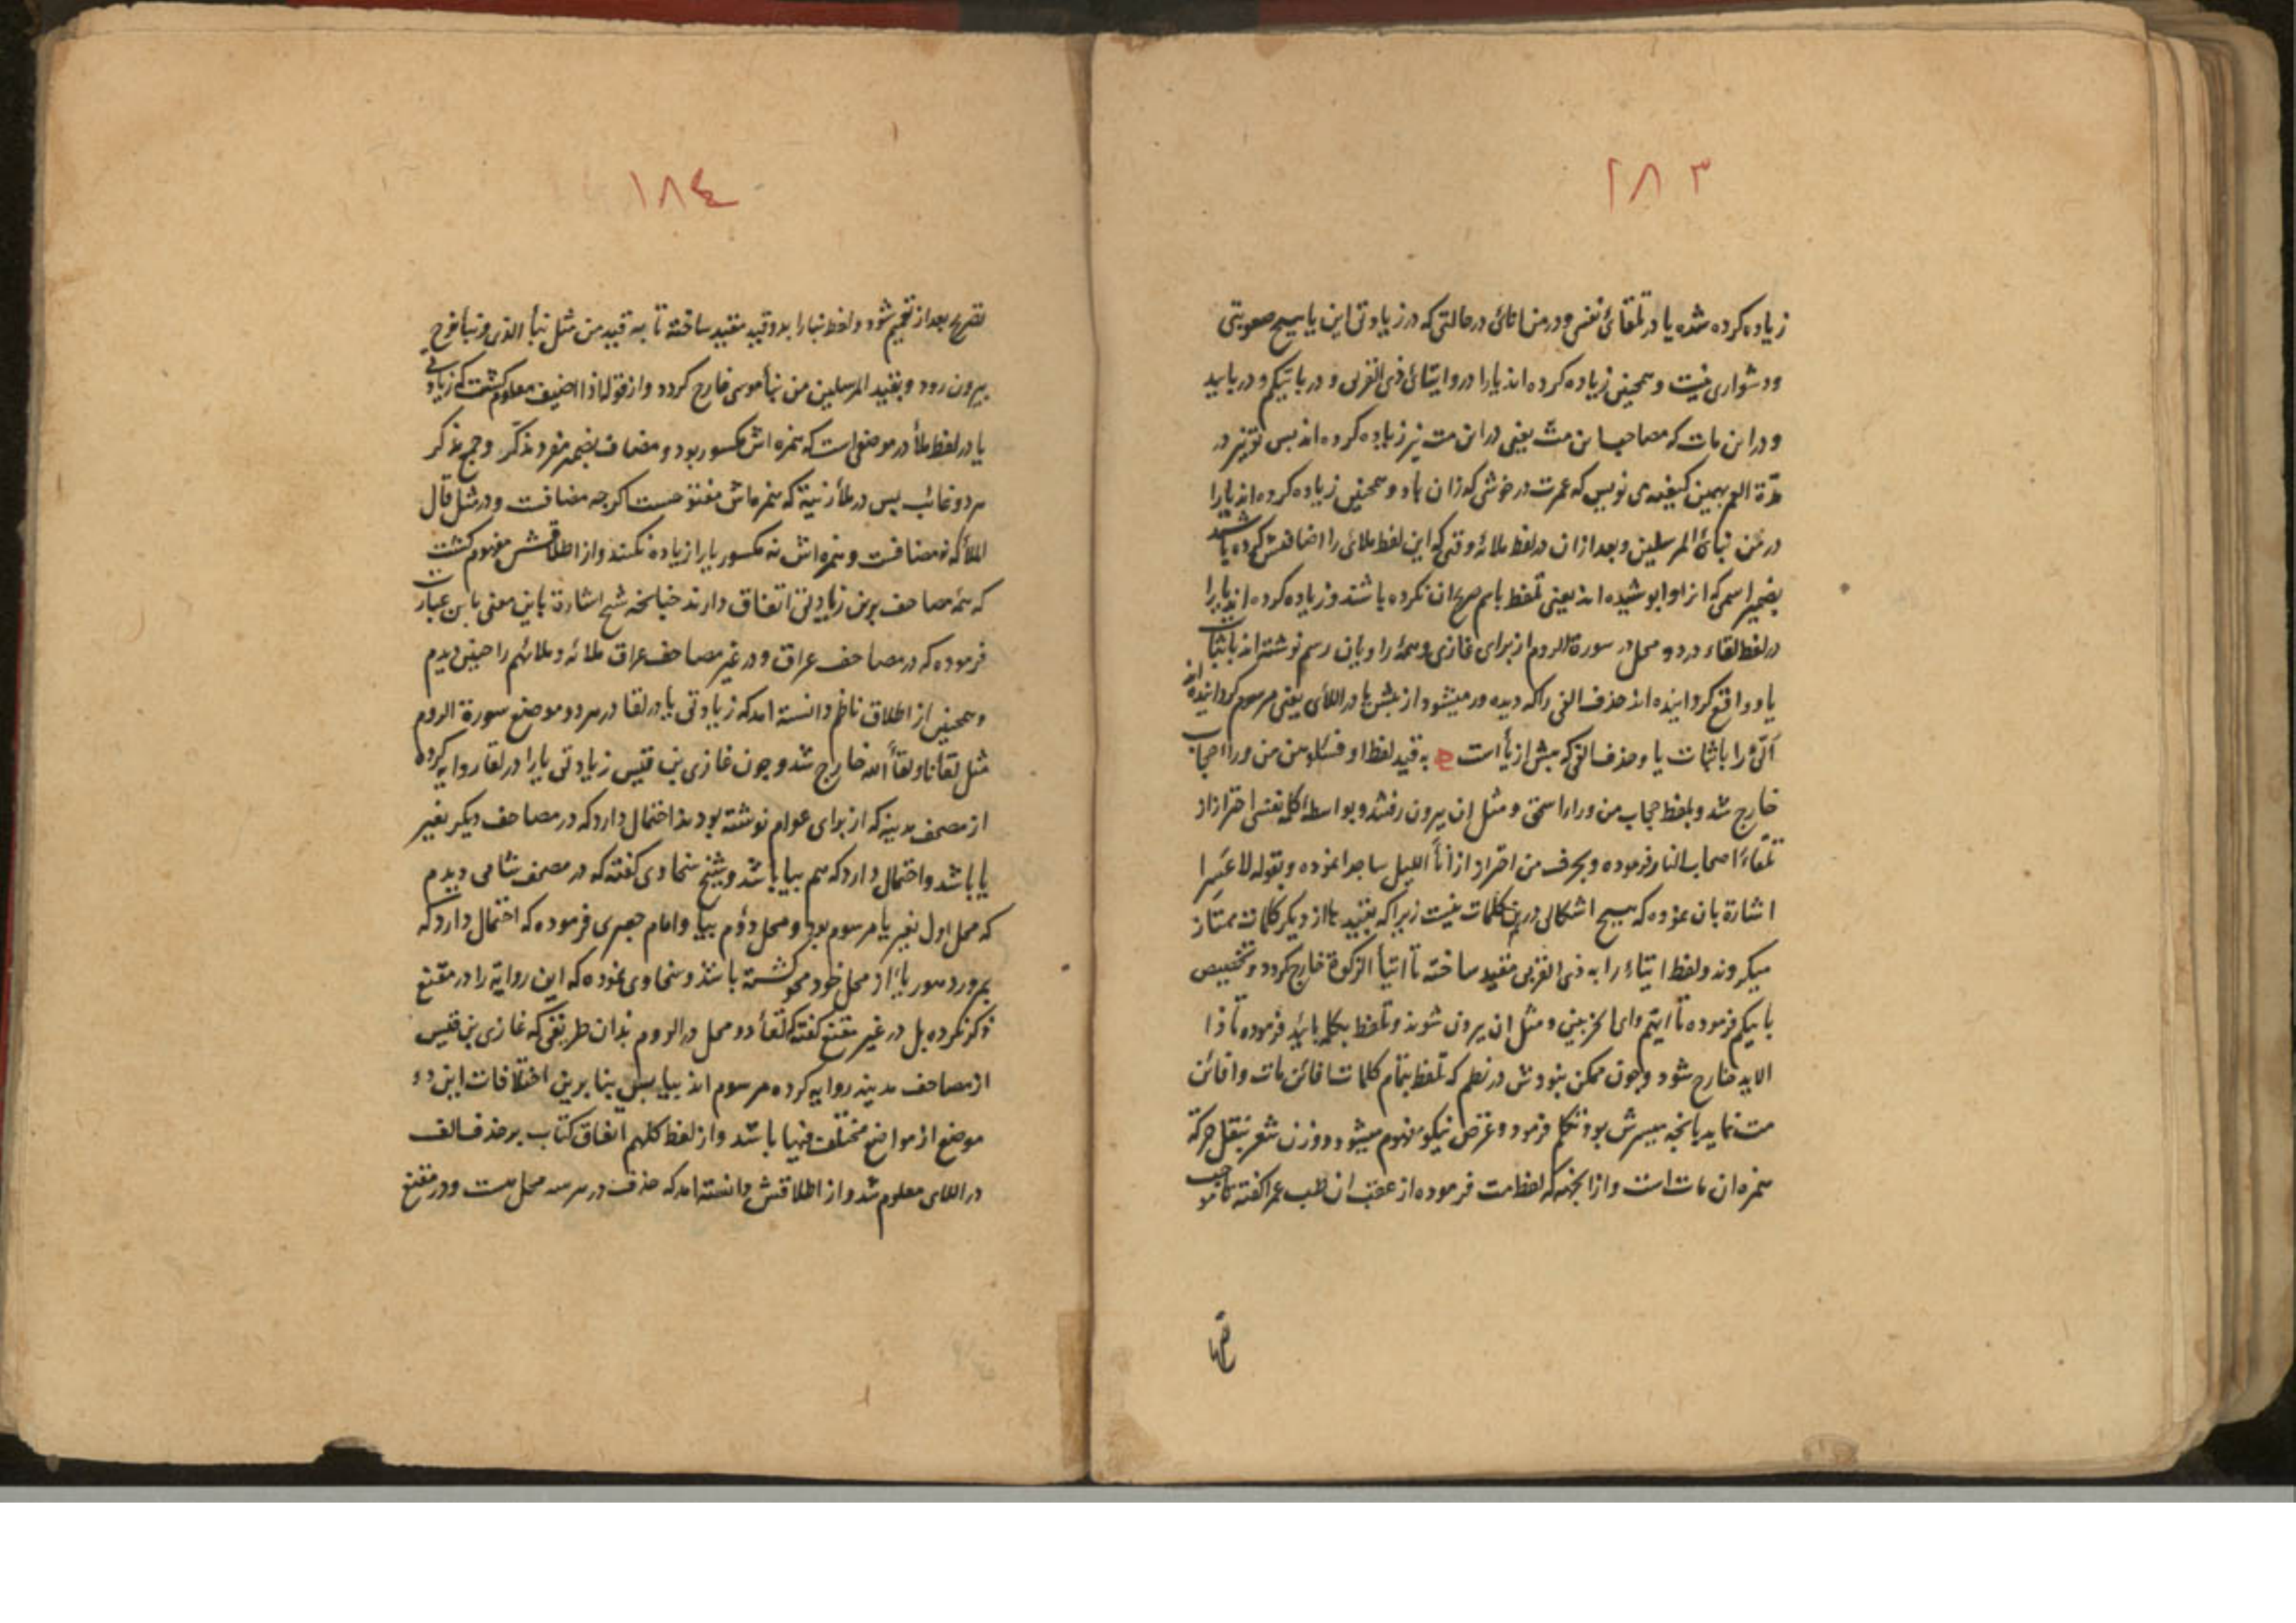 ٢٨٣
زیاده کرده شده یا در تلقائ نفسی و در من اناى در حالتی که در زیادتی این یا هیچ صعوبتی
و دشواری نیست و همچنین زیاده کرده اند یا را در و ایتائ ذی القربی و در باییکم و در باید
و در این مات که مصاحبا ین مت یعنی در این مت نیز زیاده کرده اند پس تو نیز در
مدّة العمر بهمین کیفیه می نویس که عمرت در خوشی کذران باد و همچنین زیاده کرده اند یا را
در من نبائ المرسلین و بعد از ان در لفظ ملائه وقتی که این لفظ ملائ را اضافتش کرده باشند
بضمیر اسمی که انرا و پوشیده اند یعنی تلفظ باسم صریح ان نکرده باشند و زیاده کرده اند یا را
در لفظ لقاء در دو محل در سورة الروم از برای غازی و همۀ راویان رسم نوشته اند باثبات
یا و واقع کردانیده اند حذف الفی را که دیده ور میشود از پیش یا در اللائ یعنی مرسوم کردانیده اند
الّئ را باثبات یا و حذف الفی که پیش از یا است به قید لفظ او فسئلوهن من وراء حجاب
خارج شد و بلفظ حجاب من وراء اسحق و مثل ان بیرون رفتند و بواسطۀ کلمۀ نفسی احتراز از
تلقاء اصحاب النار فرموده و بحرف من احتراز از اناء اللیل ساجدا نموده و بقوله لا عسرا
اشارة بان نموده که هیچ اشکالی درین کلمات نیست زیرا که بقیید ها از دیکر کلمات ممتاز
میکروند و لفظ ایتاء را به ذی القربی مقید ساخته تا ایتاء الزکوة خارج کردد و تخصیص
باییکم فرموده تا ایتم وای الحزبین و مثل ان بیرون شوند و تلفظ بکلمۀ باید فرموده تا ذا
الاید خارج شود و چون ممکن نبودش در نظم که تلفظ بتمام کلمات افائن مات و افائن
مت نماید بانچه میسرش بود تکلم فرمود و غرض نیکو مفهوم میشود و وزن شعر بنقل حرکة
همزه ان مات است و از انجهة که لفظ مت فرموده از عقب ان طب عمرا کفته تا موجب
١٨٤
تفریح بعد از تحجیم شود و لفظ نبا را بدو قید مقید ساخته تا به قید من مثل نبأ الذی و نبأ نوح
بیرون رود و بقید المرسلین من نبأ موسی خارج کردد و از قوله اذا اضیف معلوم کشت که زیادتی
یا در لفظ ملأ در موضعی است که همزه اش مکسور بود و مضاف بضمیر مفرد مذکّر و جمع مذکر
هر دو غائب پس در ملأ زنیة که همزه اش مفتوحست اکرچه مضافت و در مثل قال
الملأ که نه مضافت و همزه اش نه مکسور یا را زیاده نکنند و از اطلاقش مفهوم کشت
که همۀ مصاحف برین زیادتی اتفاق دارند چنانچه شیخ اشارة باین معنی باین عبارت
فرموده که در مصاحف عراق و در غیر مصاحف عراق ملائه و ملائهم را چنین دیدم
و همچنین از اطلاق ناظم دانسته امد که زیادتی یا در لقا در هر دو موضع سورة الروم
مثل لقاءنا و لقاء الله خارج شد و چون غازی بن قیس زیادتی یا را در لقا روایه کرده
از مصحف مدینه که از برای عوام نوشته بودند احتمال دارد که در مصاحف دیکر بغیر
یا باشد و احتمال دارد که هم بیا باشد و شیخ سخاوی کفته که در مصحف شامی دیدم
که محل اول بغیر یا مرسوم بود و محل دوّم بیا و امام جعبری فرموده که احتمال دارد که
بمرور دهور یا از محل خود محو کشته باشد و سخاوی نموده که این روایة را در مقنع
ذکر نکرده بل در غیر مقنع کفته که لقاء دو محل در الروم بدان طریقی که غازی بن قیس
از مصاحف مدینه روایه کرده مرسوم اند بیا پس بنا برین اختلافات این دو
موضع از مواضع مختلف فیها باشد و از لفظ کلهم اتفاق کتاب بر حذف الف
در اللای معلوم شد و از اطلاقش دانسته امد که حذف در هر سه محل هست و در مقنع